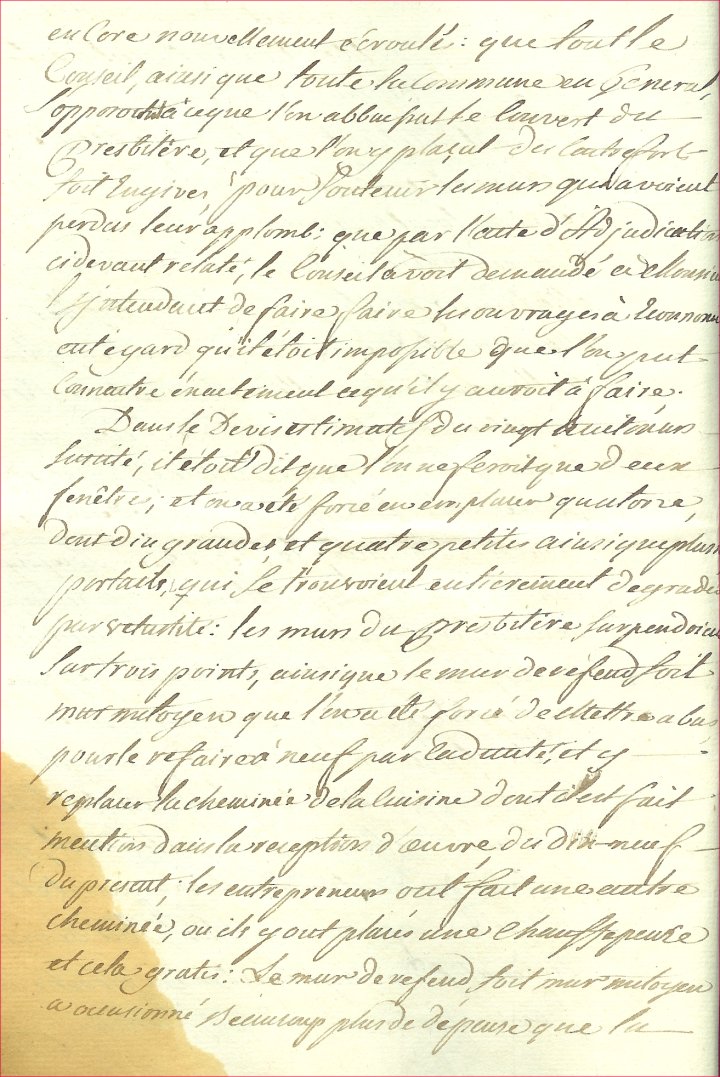 encore nouvellement écroulé: que tout le
Conseil, ainsi que toute la Commune en General,
s'opposoit à ce que l'on abbatit le Couvert du
Presbitère, et que l'on y plaçat des Contrefort
soit pour soutenir les murs qui avoient
perdus leur applomb: que par l'acte d'Adjudication
cidevant relaté, le Conseil avoit demandé a Monsieur
l'jntendant de faire faire les ouvrages à
eut égard qu'il étoit impossible que l'on put
Connoatre éxactement ce qu'il y auroit à faire.
Dans le Devis estimatif du vingt
, il étoit dit que l'on ne feroit que deux
fenêtres; et on a été forcé en en placer quatorze,
dont dix grandes, et quatre petites ainsi que plus
portails, qui se trouvoient entierement degradé
par vetustité: les murs du Presbitère surpendoient
sur trois points, ainsi que le mur de réfend soit
mur mitoyen que l'on a été forcé de Mettre a bas
pour le refaire à neuf par Caducité, et y
replacer la cheminée de la Cuisine dont il est fait
mention dans la reception d'œuvre du Dix-neuf
du present; les entrepreneurs ont fait une autre
cheminée, ou ils y ont placés une Chauffepense
et cela gratis: Le mur de refend, soit mur mitoyen
a occasionné Beaucoup plus de depense que la